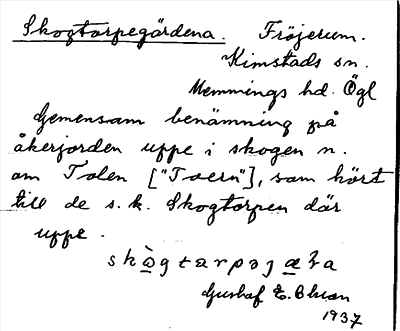 Skogtorpegärdena. Fröjerum.
Kimstads sn.
Memmings hd. Ögl
Gemensam benämning på
åkerjorden uppe i skogen n.
om Tolen ["Toern"], som hört
till de s. k. Skogtorpen där
uppe.
Gustaf E.
1937